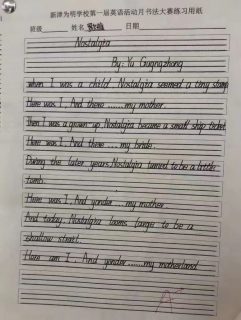 新津为明学校第一届英语活动月书法大赛练习用纸
班级 姓名 日期
Nostalgia
By: Yu Guangzhong
When I was a child Nostalgia seemed a tiny stamp
Here was I. And there ...... my mother.
Then I was a grown up Nostalgia became a small ship ticket.
Here was I. And there ...... my bride.
During the later years, Nostalgia turned to be a little
tomb.
Here was I. And yonder ...... my mother
And today, Nostalgia looms large to be a
shallow strait.
Here am I. And yonder ...... my motherland
A